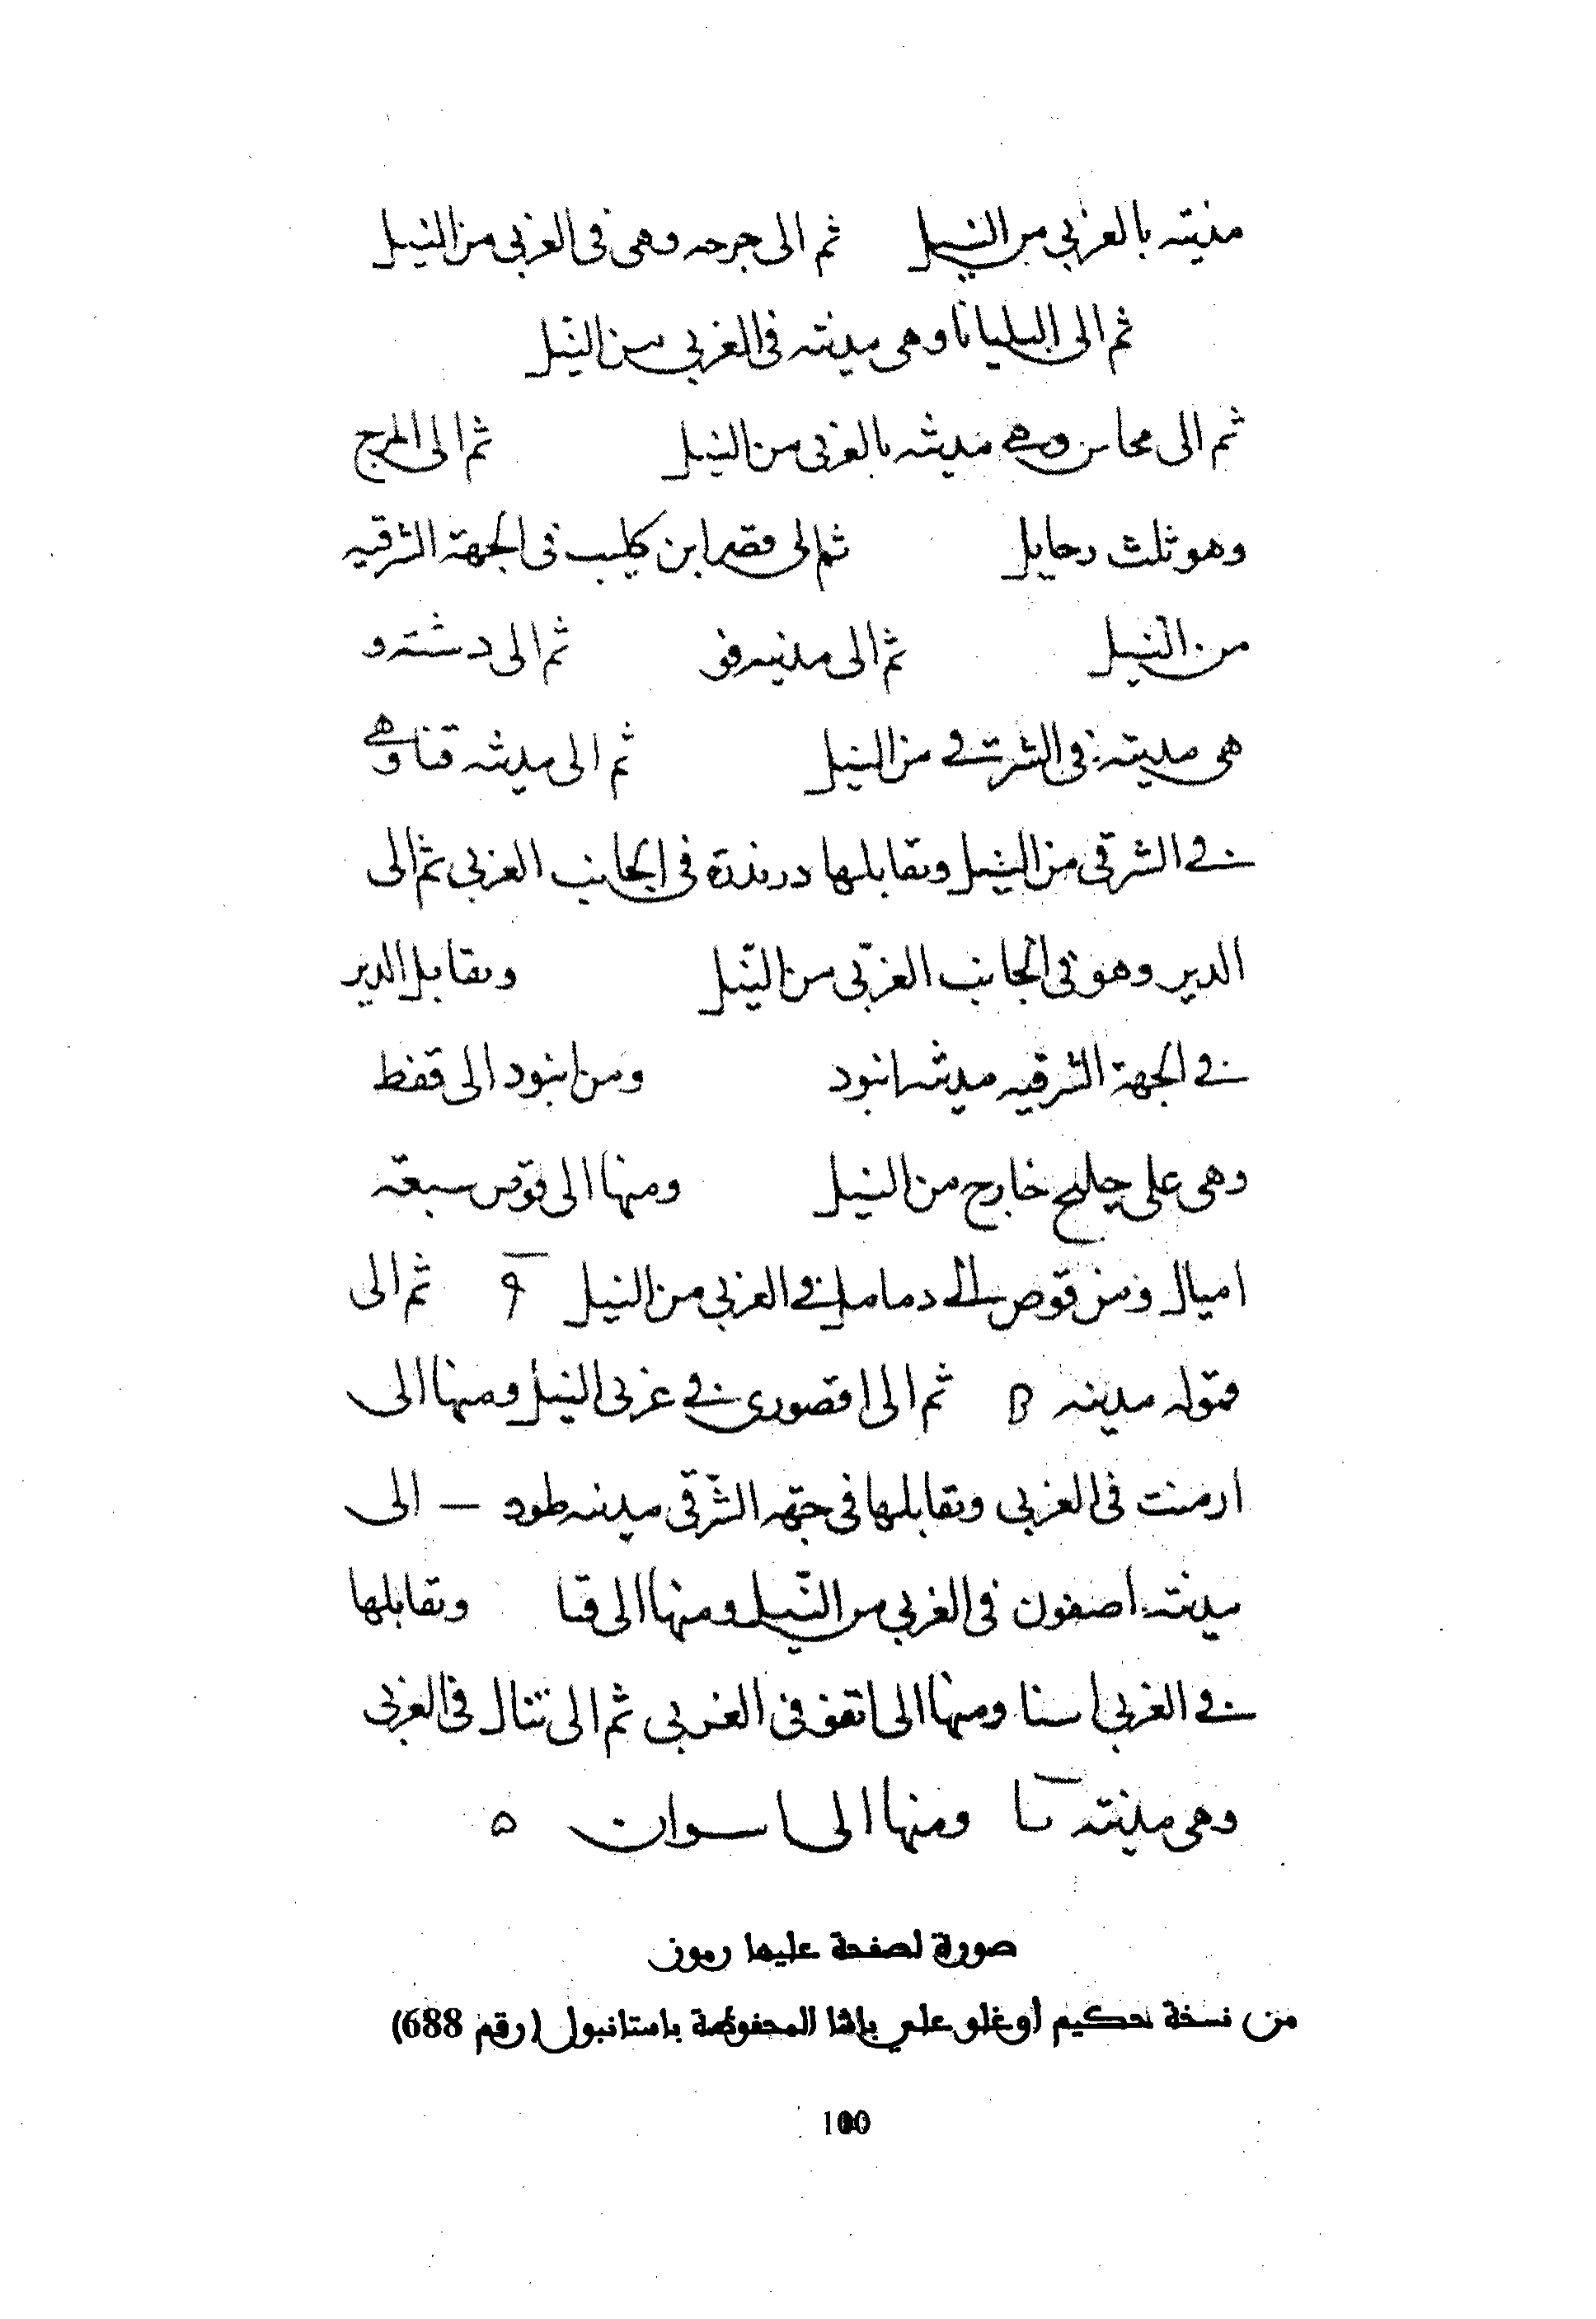 مدينة بالغربي من النيل ثم الى جرجه وهى فى الغربي من النيل
ثم الى البليانا وهى مدينة فى الغربي من النيل
ثم الى محاسن وهى مدينة بالغربي من النيل ثم الى المرج
وهو ثلث رحايل ثم الى قصر ابن كليب فى الجهة الشرقيه
من النيل ثم الى مدينه فو ثم الى دشته و
هى مدينة فى الشرقي من النيل ثم الى مدينه قنا وهى
فى الشرقى من النيل وتقابلها درندرة فى الجانب الغربى ثم الى
الدير وهو فى الجانب الغربى من النيل وتقابل الدير
فى الجهة الشرقيه مدينة ابنود ومن ابنود الى قفط
وهى على خليج خارج من النيل ومنها الى قوص سبعة
اميال ومن قوص الى دمامل فى الغربي من النيل ثم الى
قموله مدينه ثم الى اقصورى فى غربى النيل ومنها الى
ارمنت فى الغربي وتقابلها فى جهة الشرقى مدينه طود – الى
مدينة اصفون فى الغربي من النيل ومنها الى قنا وتقابلها
فى الغربي اسنا ومنها الى اتفو فى الغربى ثم الى تنال فى الغربى
وهى مدينة ومنها الى اسوان ه
صورة لصفحة عليها رموز
من نسخة حكيم أوغلو علي باشا المحفوظة باستانبول (رقم 688)
100